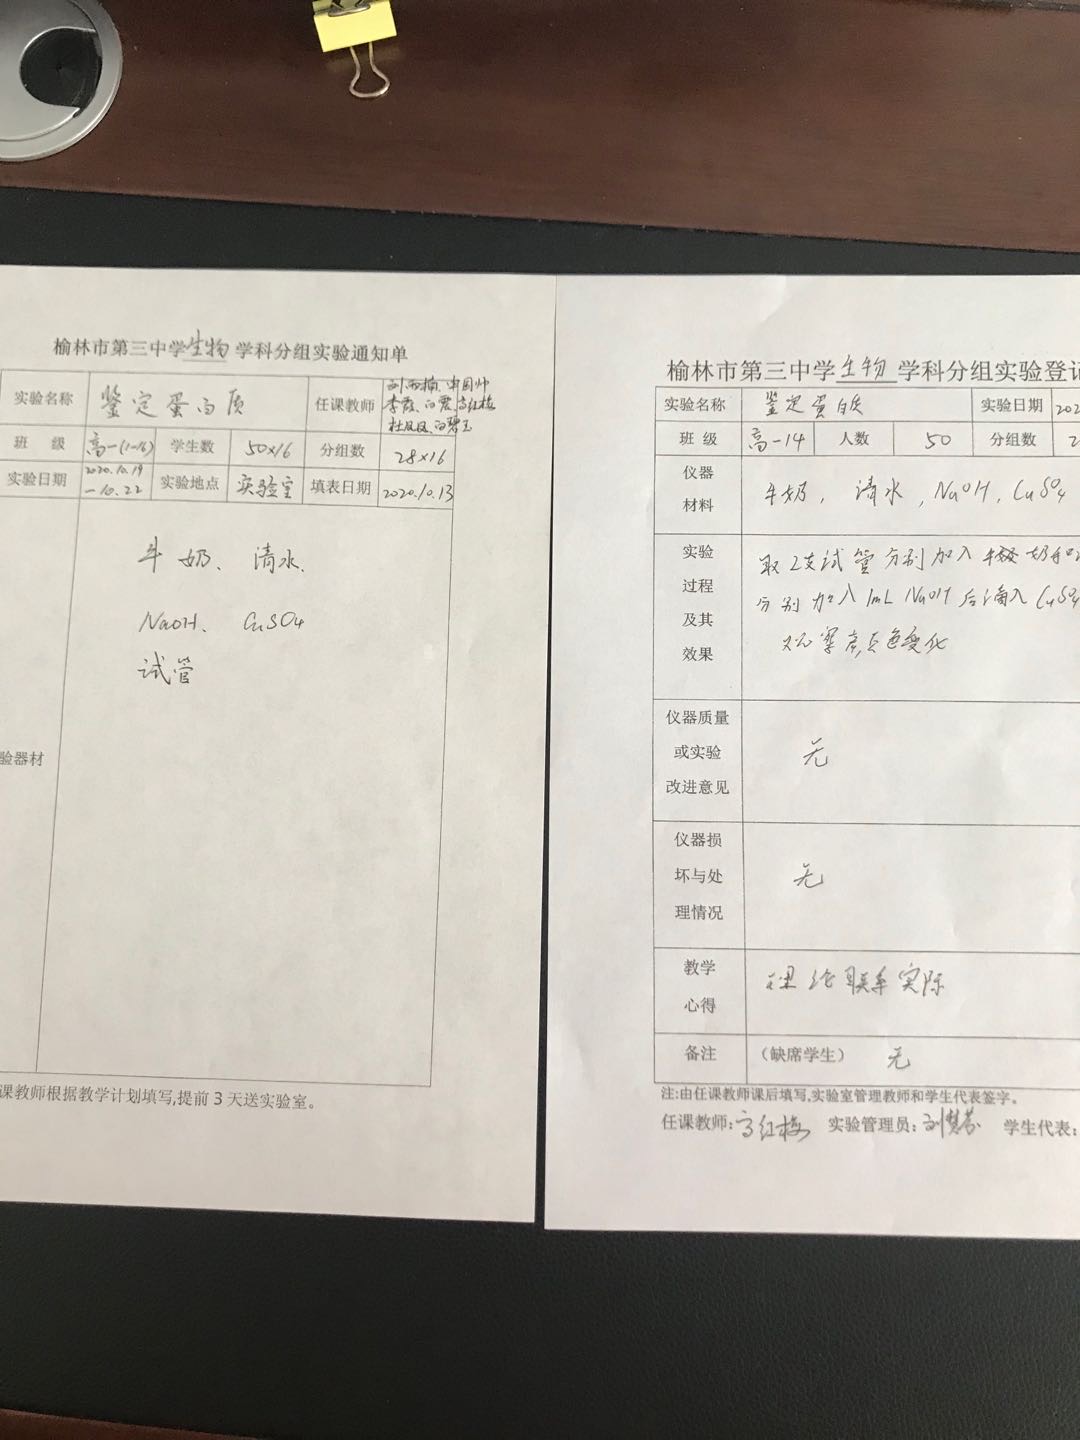 榆林市第三中学生物 学科分组实验通知单
实验名称 鉴定蛋白质 任课教师
李霞、白震、高红梅
班 级 高一(1-16) 学生数 50×16 分组数 28×16
实验日期 2020.10.19
-10.22 实验地点 实验室 填表日期 2020.10.13
牛奶、清水、
NaOH、CuSO4
试管
验器材
课教师根据教学计划填写,提前3天送实验室。
榆林市第三中学生物 学科分组实验登记
实验名称 鉴定蛋白质 实验日期 202
班 级 高一14 人数 50 分组数 2
仪器
材料
牛奶，清水，NaOH，CuSO4
实验
过程
及其
效果
取2支试管分别加入牛奶和
分别加入1mL NaOH后滴入CuSO4
观察颜色变化
仪器质量
或实验
改进意见
无
仪器损
坏与处
理情况
无
教学
心得
理论联系实际
备注 (缺席学生) 无
注:由任课教师课后填写,实验室管理教师和学生代表签字。
任课教师:高红梅 实验管理员: 学生代表: